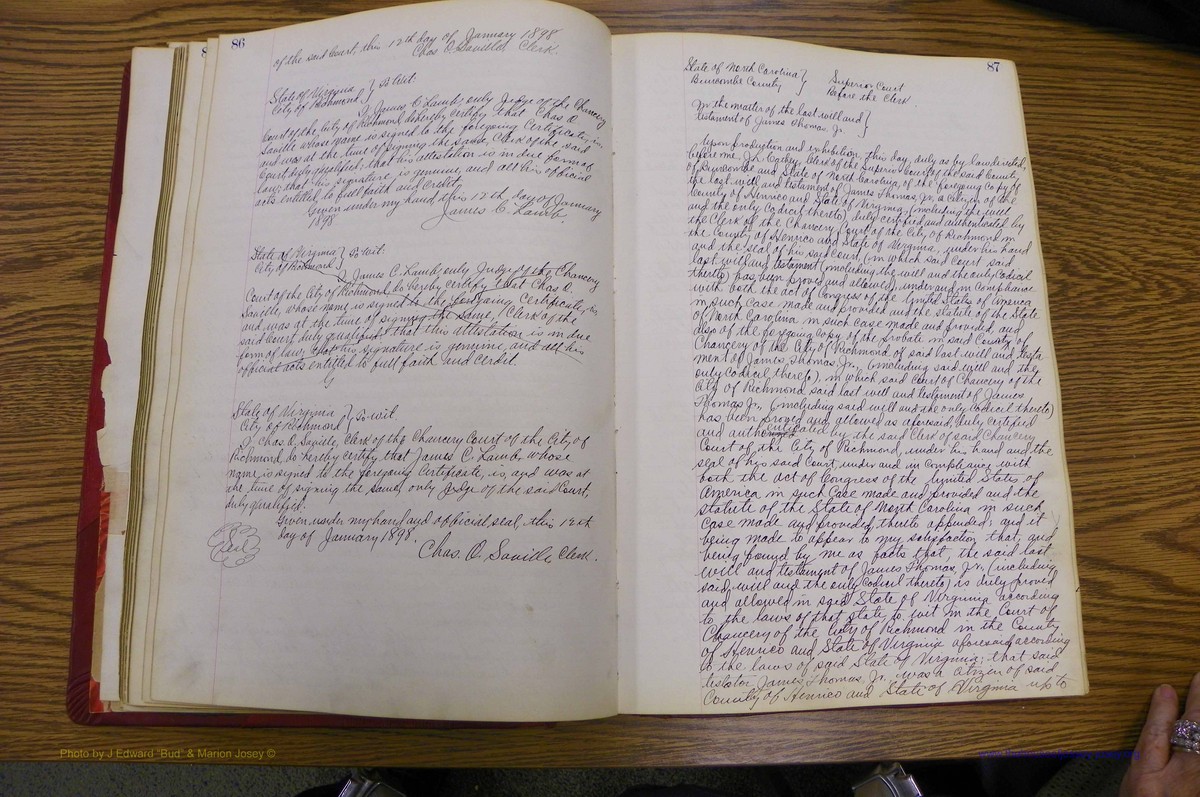 86
of the said Court, this 12th day of January 1898
Chas O. Saville Clerk.
State of Virginia } To Wit:
City of Richmond, }
I, James C. Lamb, only Judge of the Chancery
Court of the City of Richmond do hereby certify that Chas O.
Saville whose name is signed to the foregoing Certificate, is
and was at the time of signing the same, Clerk of the said
Court duly qualified; that his attestation is in due form of
law, that his signature is genuine, and all his official
acts entitled to full faith and credity.
Given under my hand this 12th day of January
1898
James C. Lamb
State of Virginia } To Wit:
City of Richmond, }
I, James C. Lamb, only Judge of the Chancery
Court of the City of Richmond do hereby certify that Chas O.
Saville, whose name is signed to the foregoing Certificate, is
and was at the time of signing the same, Clerk of the
said Court duly qualified: that this attestation is in due
form of law, that his signature is genuine, and all his
official acts entitled to full faith and cerdit.
State of Virginia } To wit
City of Richmond }
I, Chas O. Saville, Clerk of the Chancery Court of the City of
Richmond do hereby certify that James C. Lamb, whose
name is signed to the foregoing Certificate, is, and was at
the time of signing the same, only Judge of the said Court,
duly qualified.
Given under my hand and official seal, this 12th
day of January 1898.
Seal
Chas. O. Saville, Clerk.
87
State of North Carolina } Superior Court
Buncombe County } Before the Clerk
In the matter of the last will and }
testament of James Thomas Jr. }
Upon production and exhibition, this day, duly as by law directed,
before me, J.L. Cathey, Clerk of the Superior Court of the said County,
of Buncombe and State of North Carolina, of the foregoing Copy of
the last will and testament of James Thomas, Jr., a citizen of the
County of Henrico and State of Virginia, (including the will
and the only Codicil thereto), duly certified and authenticated by
the Clerk of the Chancery Court of the City of Richmond in
the County of Henrico and State of Virginia, under his hand
and the seal of his said Court, (in which said Court said
last will and testament (including the will and the only Codicil
thereto) has been proved and allowed), under and in Compliance
with both the act of Congress of the United States of America
in such Case made and provided and the statute of the State
of North Carolina in such case made and provided, and
also of the foregoing copy of the probate in said County of
Chancery of the City of Richmond of said last will and testa
ment of James Thomas, Jr., (including said will and the
only Codicil thereto), in which said Court of Chancery of the
City of Richmond said last will and testament of James
Thomas Jr., (including said will and the only Codicil thereto)
has been proved and allowed as aforesaid, duly certified
and authenticated by the said Clerk of said Chancery
Court of the City of Richmond, under his hand and the
seal of his said Court, under and in Compliance with
both the act of Congress of the United States of
America in such case made and provided and the
statute of the State of North Carolina in such
case made and provided, thereto appended; and it
being made to appear to my satisfaction that, and
being found by me as facts that, the said last
will and testament of James Thomas, Jr., (including
said will and the only Codicil thereto) is duly proved
and allowed in said State of Virginia according
to the laws of that State, to wit in the Court of
Chancery of the City of Richmond in the County
of Henrico and State of Virginia aforesaid, according
to the laws of said State of Virginia; that said
testator, James Thomas, Jr., was a citizen of said
County of Henrico and State of Virginia up to
Photo by J Edward "Bud" & Marion Josey ©